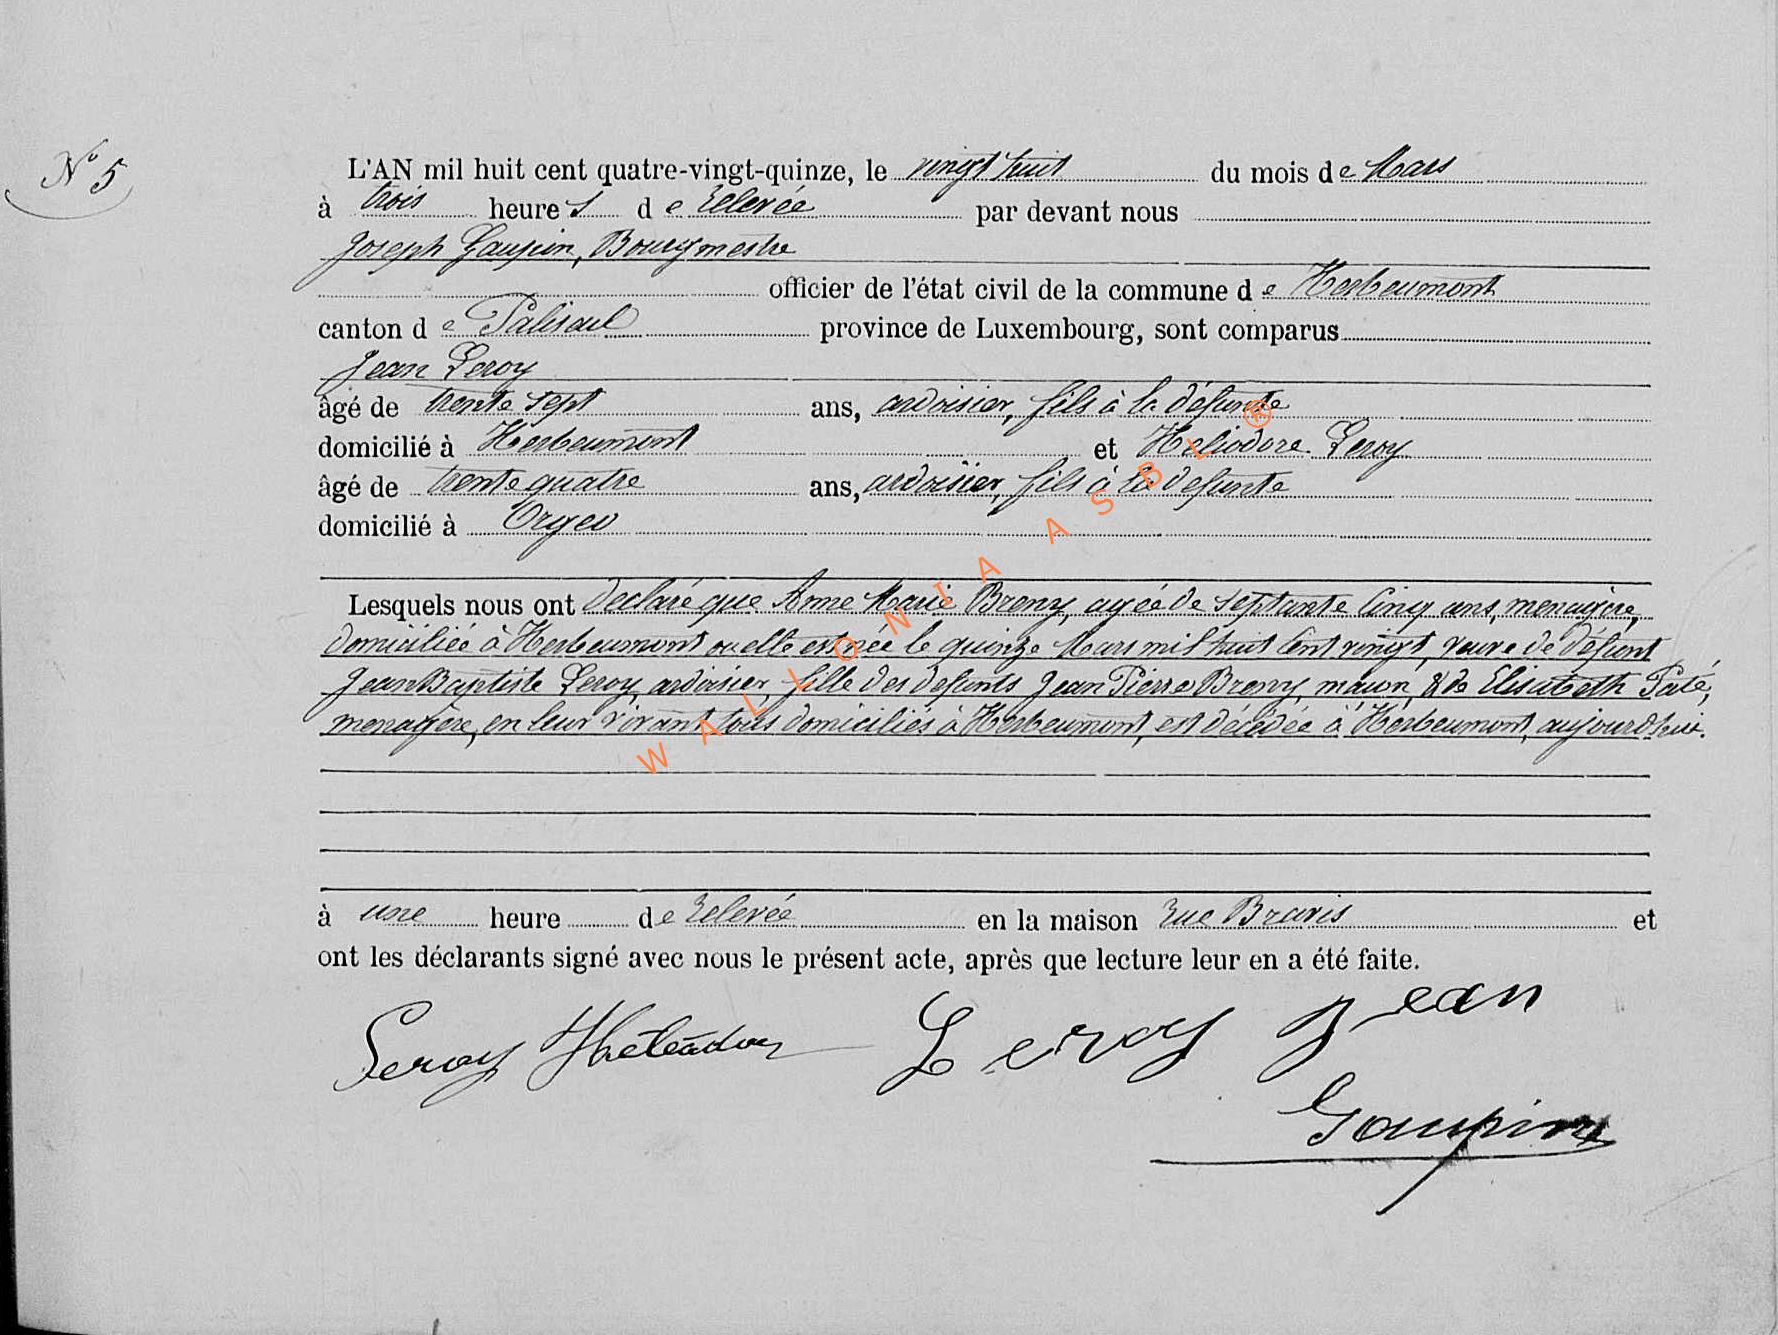 N° 5
L'AN mil huit cent quatre-vingt-quinze, le vingt huit du mois de Mars
à trois heures de relevée par devant nous
Joseph Gaupin, Bourgmestre
officier de l'état civil de la commune de Herbeumont
canton de Paliseul province de Luxembourg, sont comparus
Jean Leroy
âgé de trente sept ans, ardoisier, fils à la défunte
domicilié à Herbeumont et Héliodore Leroy
âgé de trente quatre ans, ardoisier, fils à la défunte
domicilié à Orgeo
Lesquels nous ont déclaré que Anne Marie Breny, agée de septante cinq ans, menagère,
domiciliée à Herbeumont ou elle est née le quinze Mars mil huit cent vingt, veuve de défunt
Jean Baptiste Leroy, ardoisier, fille des defunts Jean Pierre Breny, maçon, & de Elisabeth Paté,
menagère, en leur vivant tous domiciliés à Herbeumont, est décédée à Herbeumont, aujourdhui.
à une heure de relevée en la maison rue Bravis et
ont les déclarants signé avec nous le présent acte, après que lecture leur en a été faite.
Leroy Leroy Jean
Gaupin
WALLONIA ASBL ®